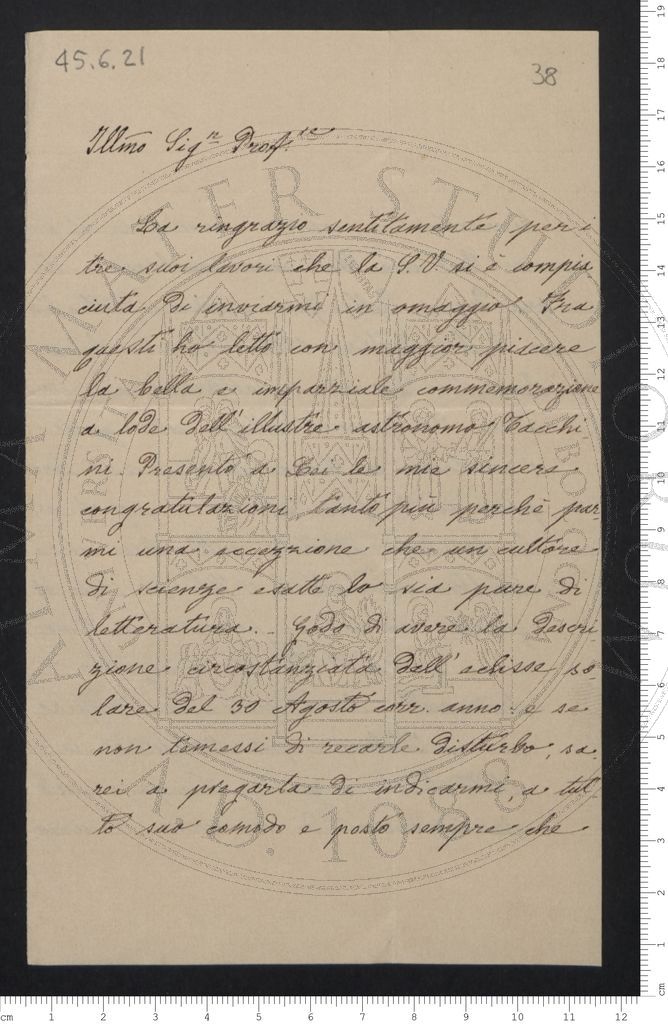 45.6.21
38
Illmo Sig.r Prof.re
La ringrazio sentitamente per i
tre suoi lavori che la S. V. si è compia
ciuta di inviarmi in omaggio. Fra
questi ho letto con maggior piacere
la bella e imparziale commemorazione
a lode dell'illustre astronomo Tacchi
ni. Presento a Lei le mie sincere
congratulazioni tanto più perchè par
mi una eccezzione che un cultore
di scienze esatte lo sia pure di
letteratura. Godo di avere la descri
zione circostanziata dall'eclisse so
lare del 30 Agosto corr. anno: e se
non temessi di recarle disturbo, sa
rei a pregarla di indicarmi, a tut
to suo comodo e posto sempre che
ALMA MATER STUDIORUM
A.D. 1088